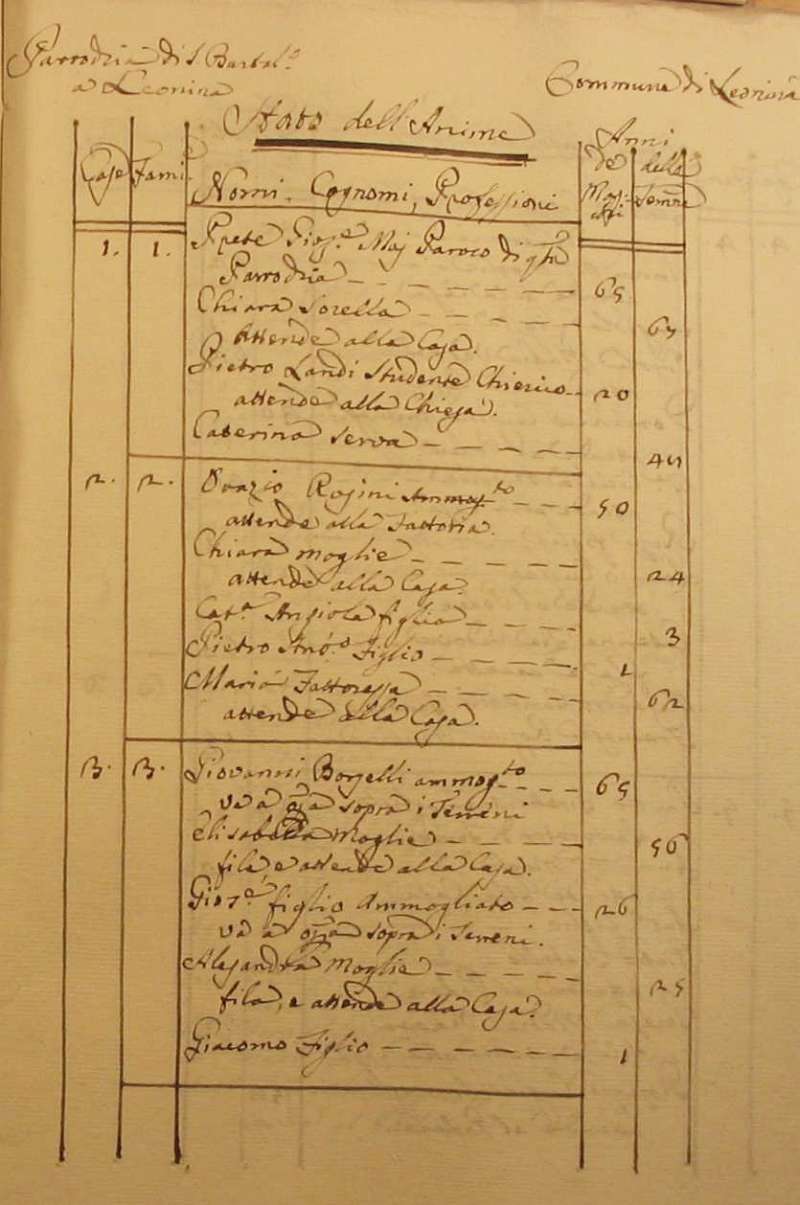 Parrochia di S. Bartol.o
a Leonina
Commune di Leonina
Stato dell'Anime
Case Fami. Nomi, Cognomi, Professioni Anni de Maschi della Femine
1. 1. Prete Gios.e Maj Paroco di q.ta
Parrochia 65
Chiara Sorella 67
attende alla Casa.
Pietro Landi Studente Chierico 20
attende alla Chiesa.
Caterina Serva
2. 2. Orazio Rosini Ammog.to 50
attende alla Fattoria.
Chiara moglie 24
attende alla Casa.
Cat.a Angiola figlia 3
Pietro Ant.o Figlio
Maria Fattoressa 62
attende alla Casa.
3. 3. Giovanni Borselli ammog.to 65
và a op.a sopra i Terreni
Elisabetta Moglie 56
fila, e attende alla Casa.
figlio Ammogliato 26
và a op.a sopra i Terreni.
Alesandra Moglie 25
fila, e attende alla Casa.
Giacomo Figlio 1